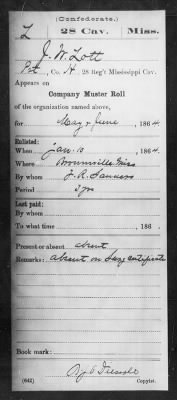 (Confederate.)
L 28 Cav. Miss.
J. W. Lott
Pvt, Co. H, 28 Reg't Mississippi Cav.
Appears on
Company Muster Roll
of the organization named above,
for May & June, 1864
Enlisted:
When Jan. 10, 1864.
Where Brownsville Miss
By whom J. R. Sanders
Period 3 yrs
Last paid:
By whom
To what time , 186 .
Present or absent absent
Remarks: absent on Surg certificate
Book mark:
(642) Copyist.